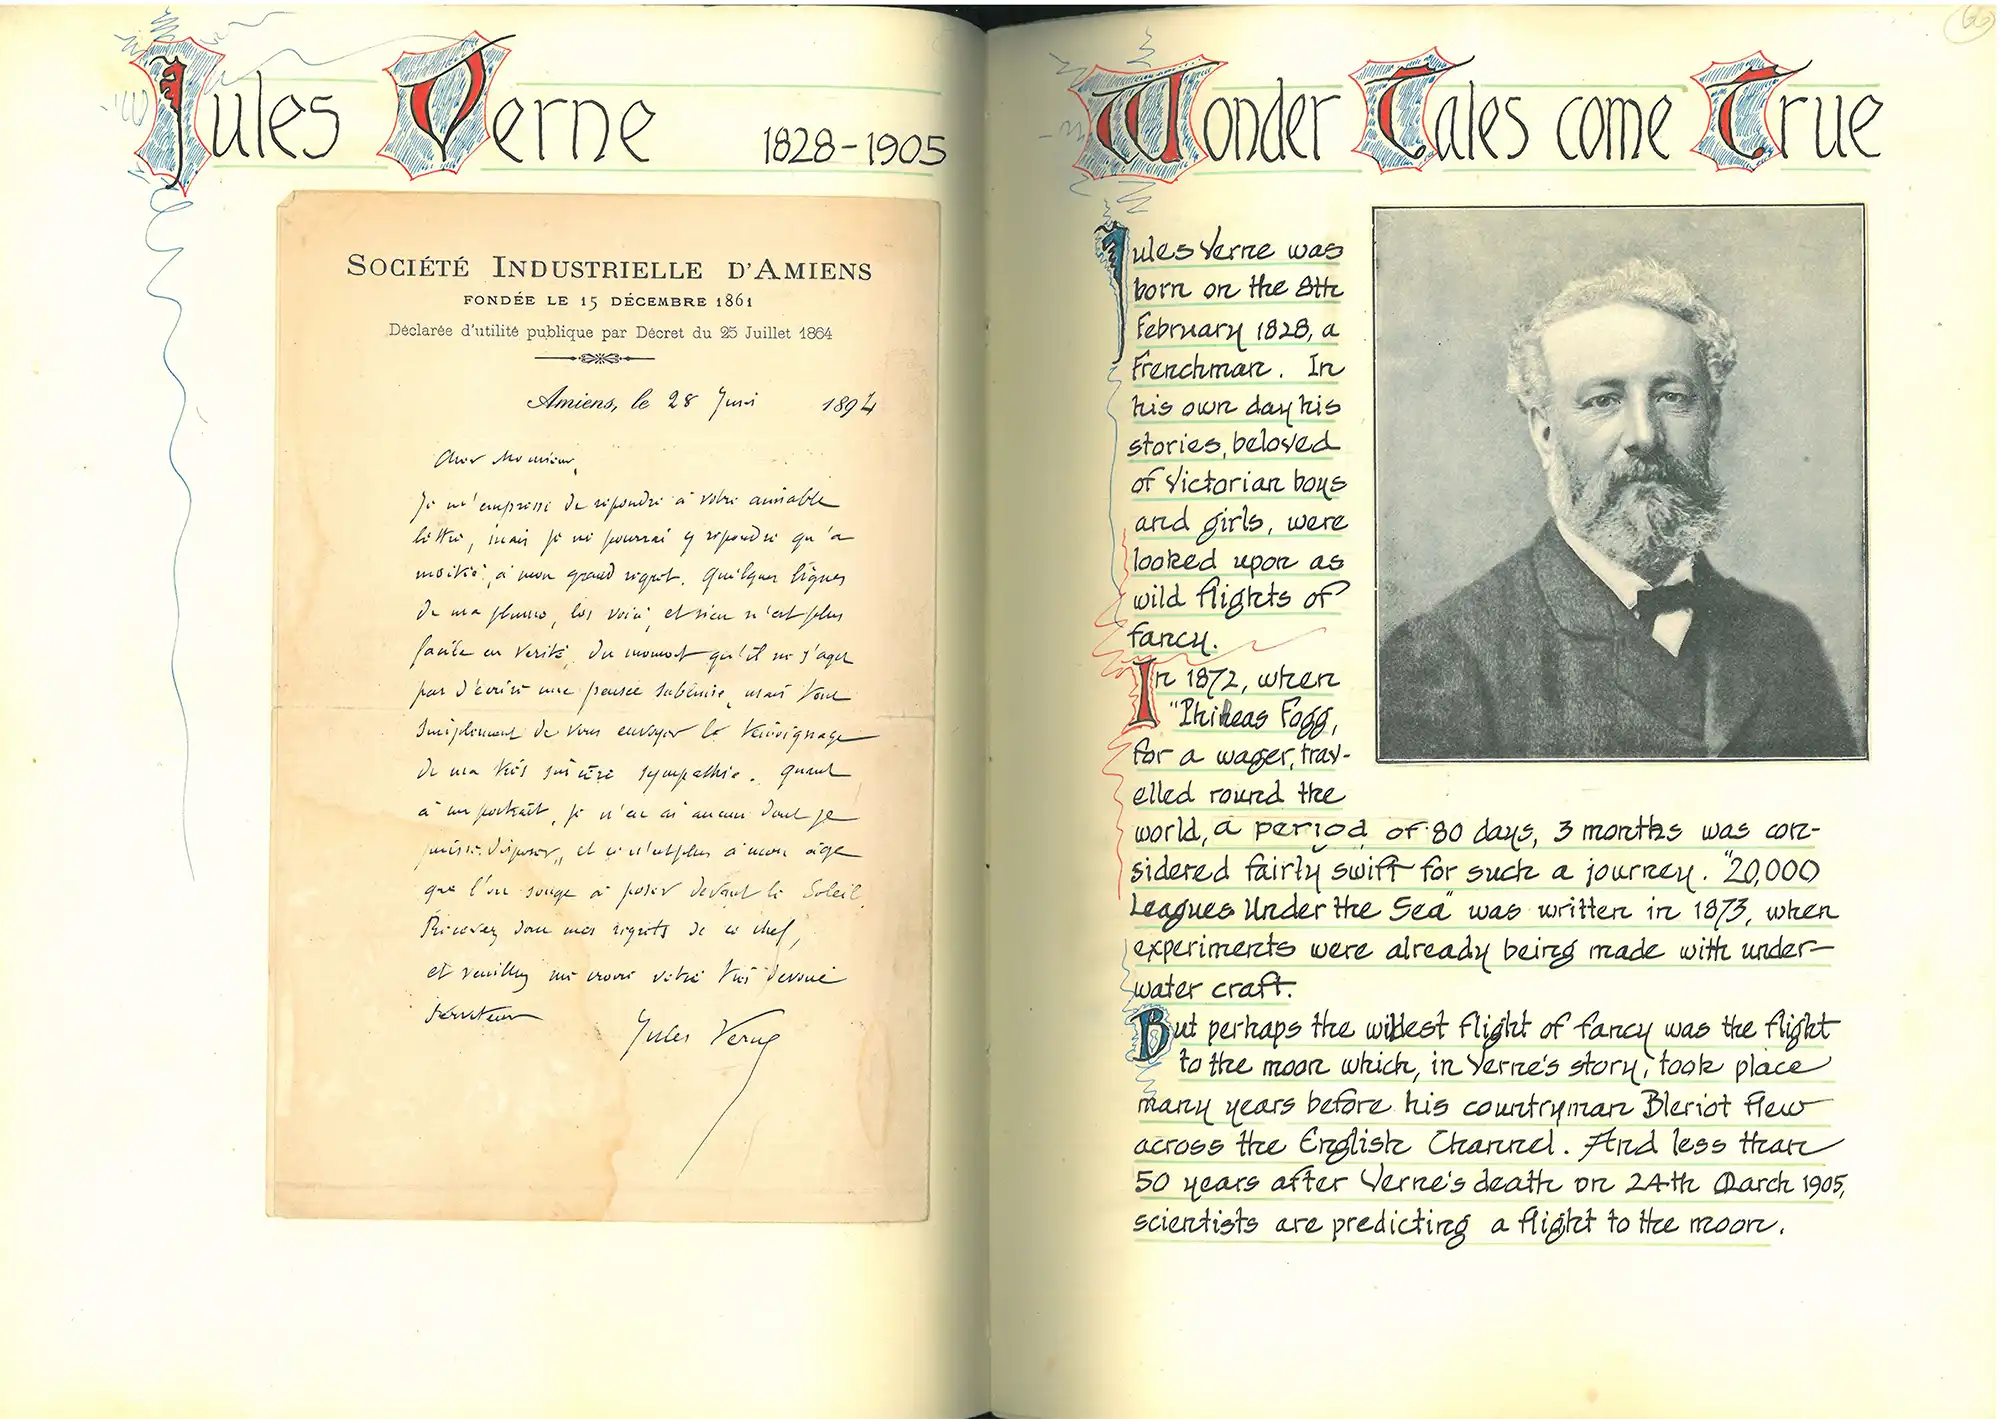 Jules Verne
1828-1905
SOCIÉTÉ INDUSTRIELLE D'AMIENS
FONDÉE LE 15 DÉCEMBRE 1861
Déclarée d'utilité publique par Décret du 25 Juillet 1864
Amiens, le 28 Juin 1894
Cher Monsieur,
Je m'empresse de répondre à votre aimable
lettre, mais je ne pourrai y répondre qu'à
moitié, à mon grand regret. Quelques lignes
de ma plume, les voici, et rien n'est plus
facile en vérité, du moment qu'il ne s'agit
pas d'écrire une pensée sublime, mais tout
simplement de vous envoyer le témoignage
de ma très sincère sympathie. Quant
à un portrait, je n'en ai aucun dont je
puisse disposer, et ce n'est plus à mon âge
que l'on songe à poser devant le Soleil.
Recevez donc mes regrets de ce chef,
et veuillez me croire votre très dévoué
serviteur
Jules Verne
Wonder Tales come True
Jules Verne was
born on the 8th
February 1828, a
Frenchman. In
his own day his
stories, beloved
of Victorian boys
and girls, were
looked upon as
wild flights of
fancy.
In 1872, when
"Phileas Fogg,
for a wager, trav-
elled round the
world, a period of 80 days, 3 months was con-
sidered fairly swift for such a journey. "20,000
Leagues Under the Sea" was written in 1873, when
experiments were already being made with under-
water craft.
But perhaps the wildest flight of fancy was the flight
to the moon which, in Verne's story, took place
many years before his countryman Bleriot flew
across the English Channel. And less than
50 years after Verne's death on 24th March 1905,
scientists are predicting a flight to the moon.